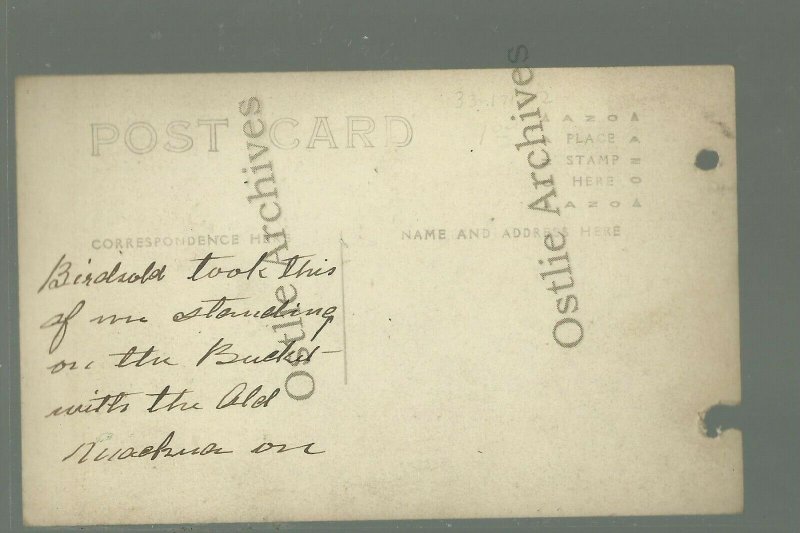 POST CARD
AZOA
PLACE
STAMP
HERE
AZOA
CORRESPONDENCE HERE
NAME AND ADDRESS HERE
took this
of me standing
on the
with the Old
on
Ostlie Archives
Ostlie Archives